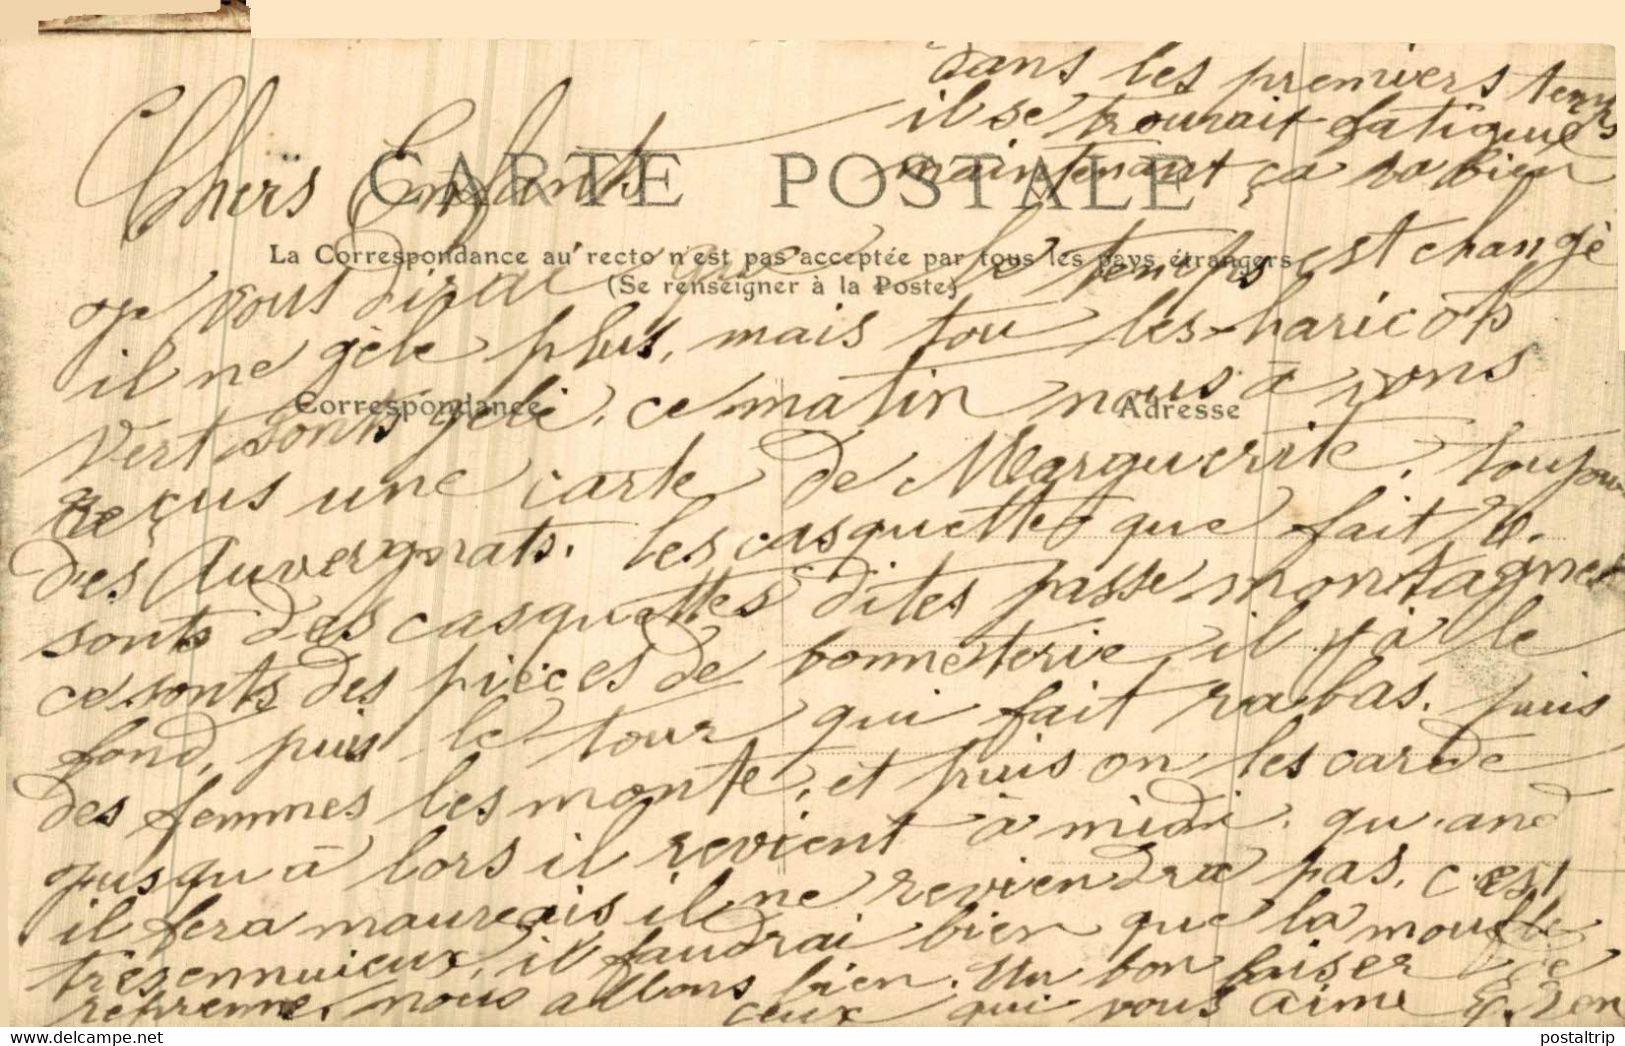 dans les premiers temps
il se trouvait fatigué
maintenant ça va bien
Chers Enfants
CARTE POSTALE
La Correspondance au recto n'est pas acceptée par tous les pays étrangers
(Se renseigner à la Poste)
je vous dirai que le temps est changé
il ne gèle plus, mais tou les haricots
Correspondance
Adresse
vert sonts gelé. ce matin nous à vons
reçus une carte de Marguerite, toujour
des Auvergnats. les casquettes que fait
sonts des casquettes dites passe montagnes
ce sonts des pièces de bonneterie, il y à le
fond, puis le tour qui fait rabas. puis
des femmes les monte, et puis on les carde
jusqu'à lors il revient à midi. quand
il fera mauvais il ne reviendra pas. c'est
très ennuieux, il faudrai bien que la moufle
reprenne. nous allons bien. Un bon baiser de
ceux qui vous aime
postaltrip
www.delcampe.net